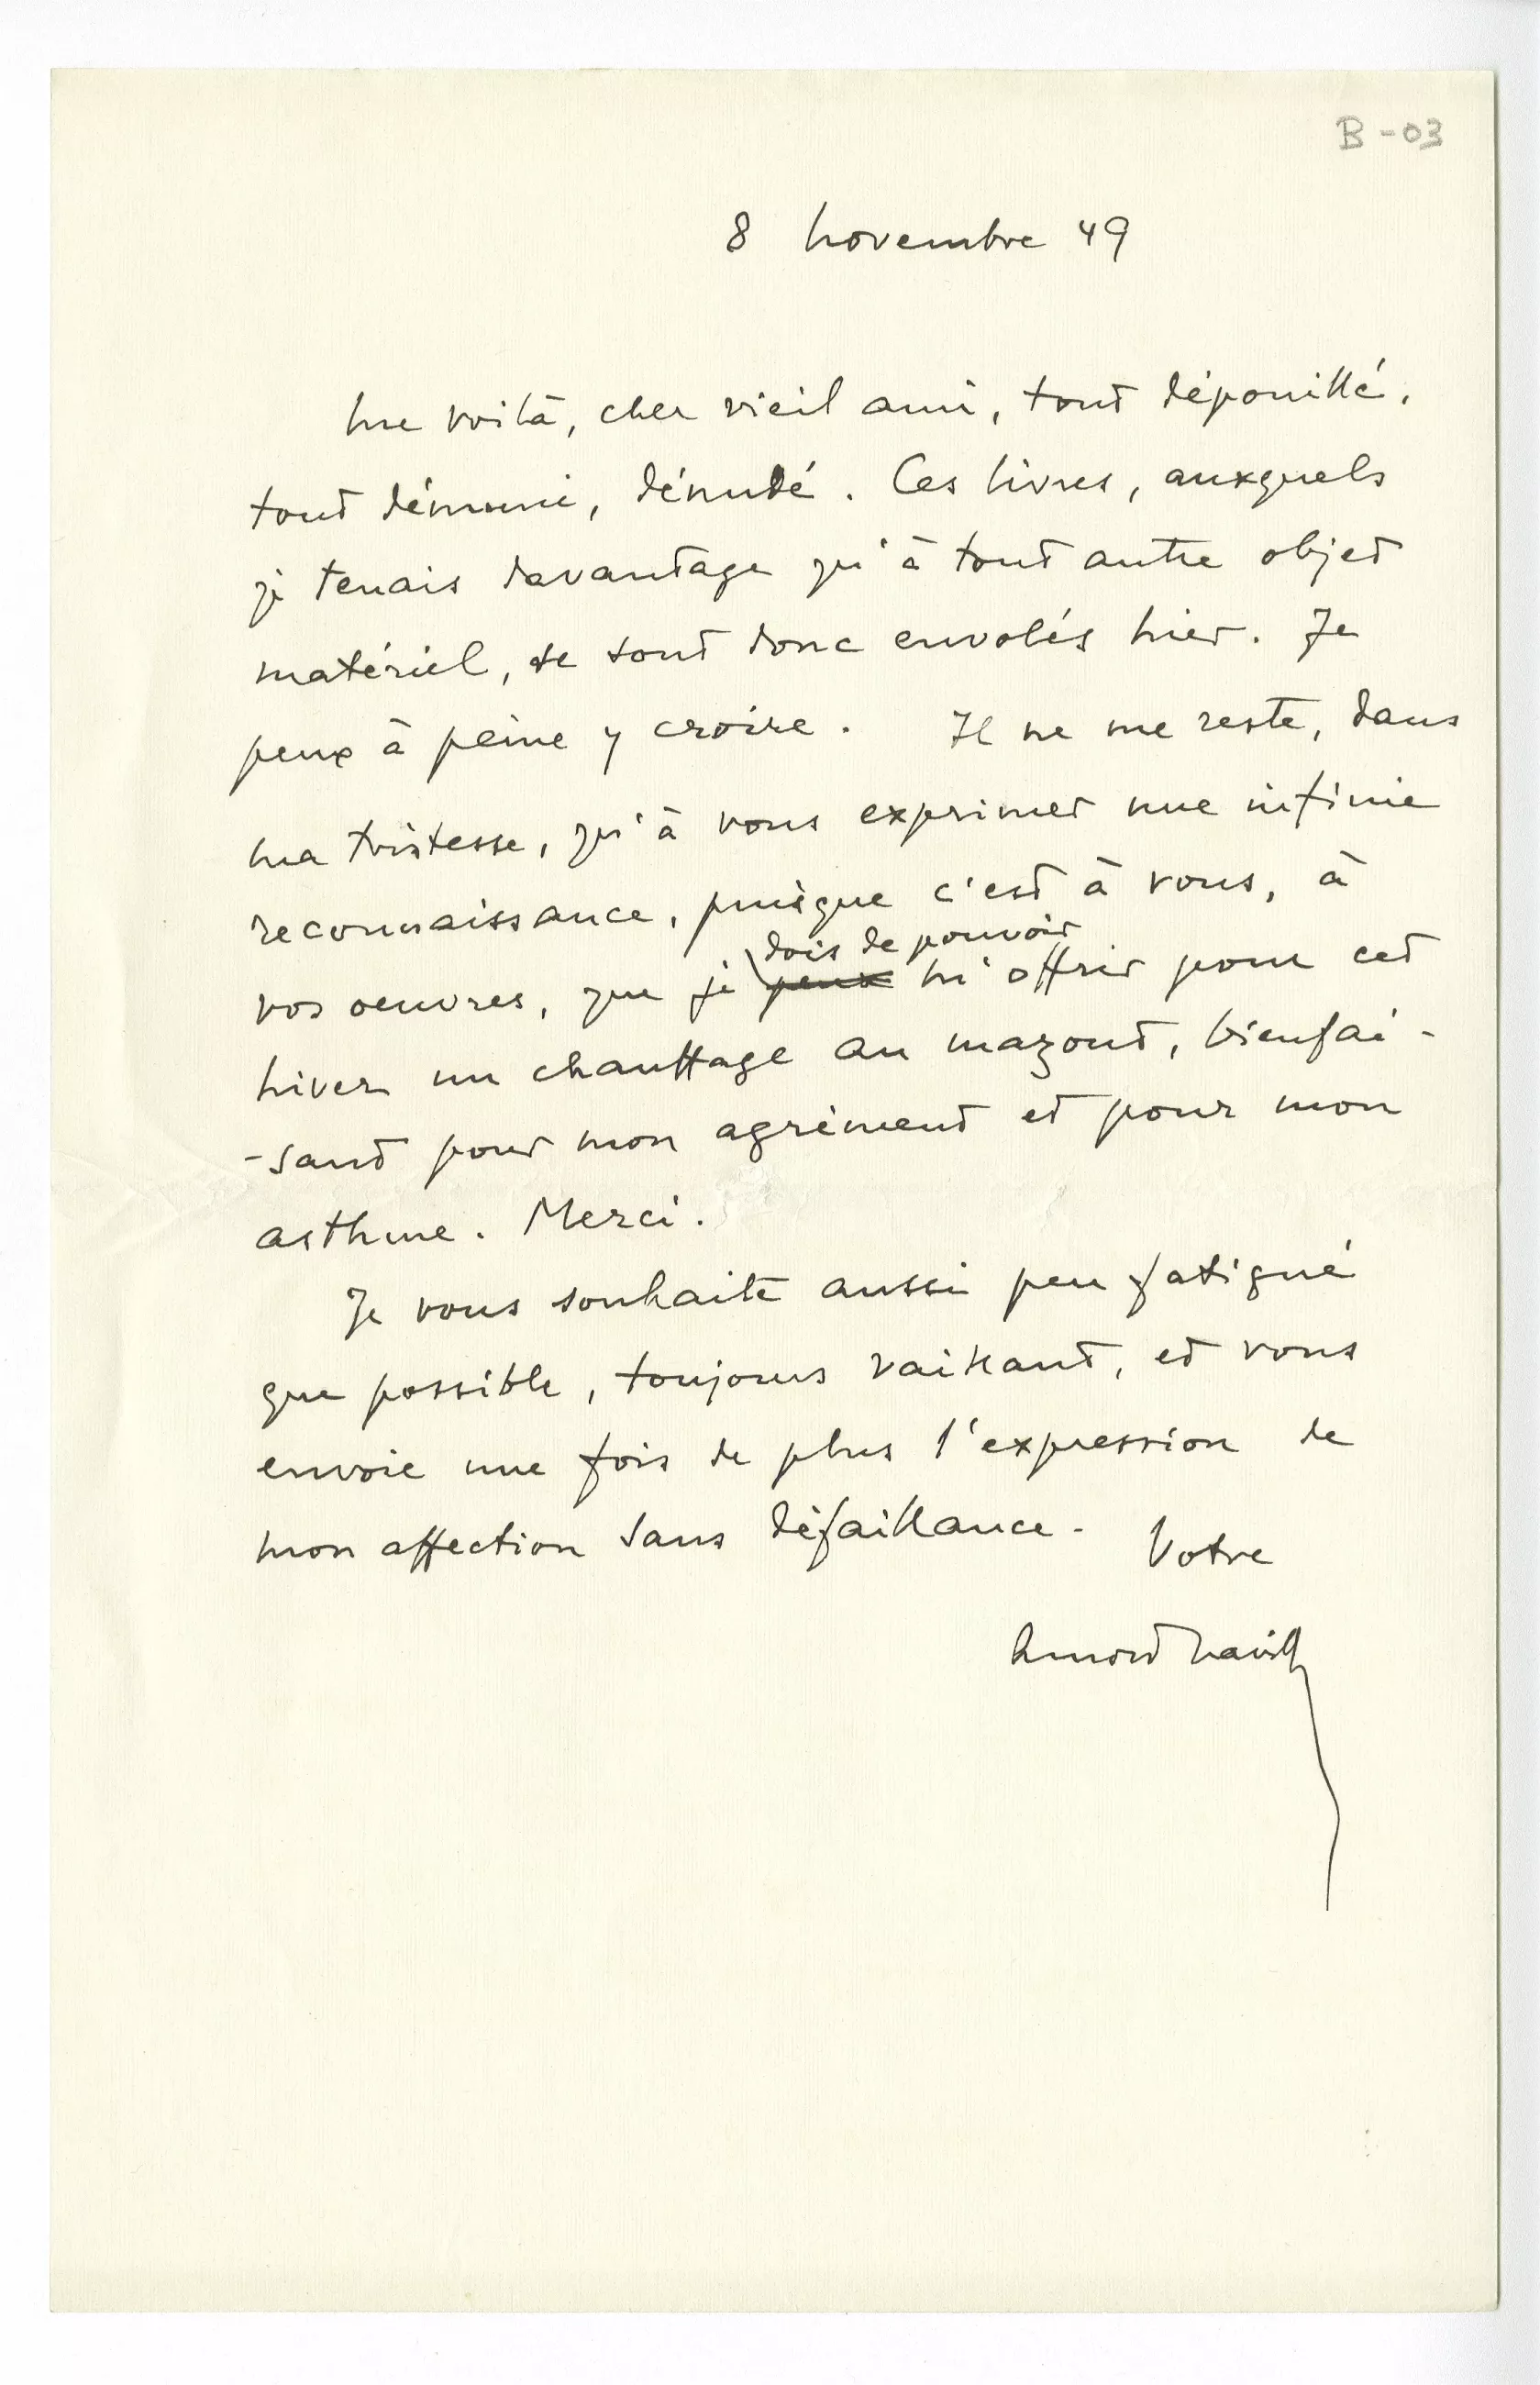 B-03
8 novembre 49
Me voilà, cher vieil ami, tout dépouillé,
tout démuni, dénudé. Ces livres, auxquels
je tenais davantage qu'à tout autre objet
matériel, se sont donc envolés hier. Je
peux à peine y croire. Il ne me reste, dans
ma tristesse, qu'à vous exprimer une infinie
reconnaissance, puisque c'est à vous, à
dois de pouvoir
vos oeuvres, que je peux m'offrir pour cet
hiver un chauffage au mazout, bienfai-
-sant pour mon agrément et pour mon
asthme. Merci.
Je vous souhaite aussi peu fatigué
que possible, toujours vaillant, et vous
envoie une fois de plus l'expression de
mon affection sans défaillance. Votre
Arnold Naville